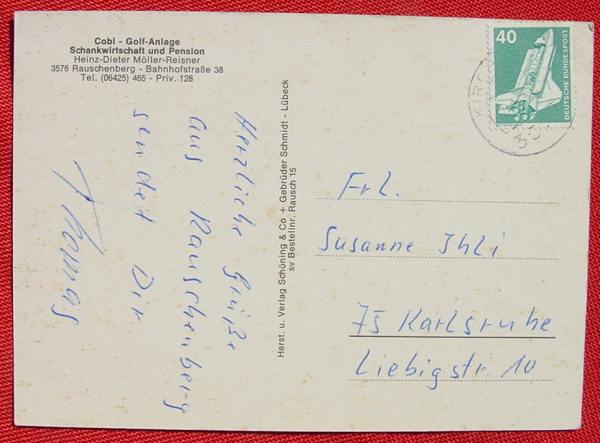 Cobi - Golf-Anlage
Schankwirtschaft und Pension
Heinz-Dieter Möller-Reisner
3576 Rauschenberg - Bahnhofstraße 38
Tel. (06425) 465 - Priv. 128
Herzliche Grüße
aus Rauschenberg
sendet Dir
Thomas
Herst. u. Verlag Schöning & Co + Gebrüder Schmidt - Lübeck
sv Bestellnr. Rausch 15
40
DEUTSCHE BUNDESPOST
Frl.
Susanne Ihli
75 Karlsruhe
Liebigstr 10